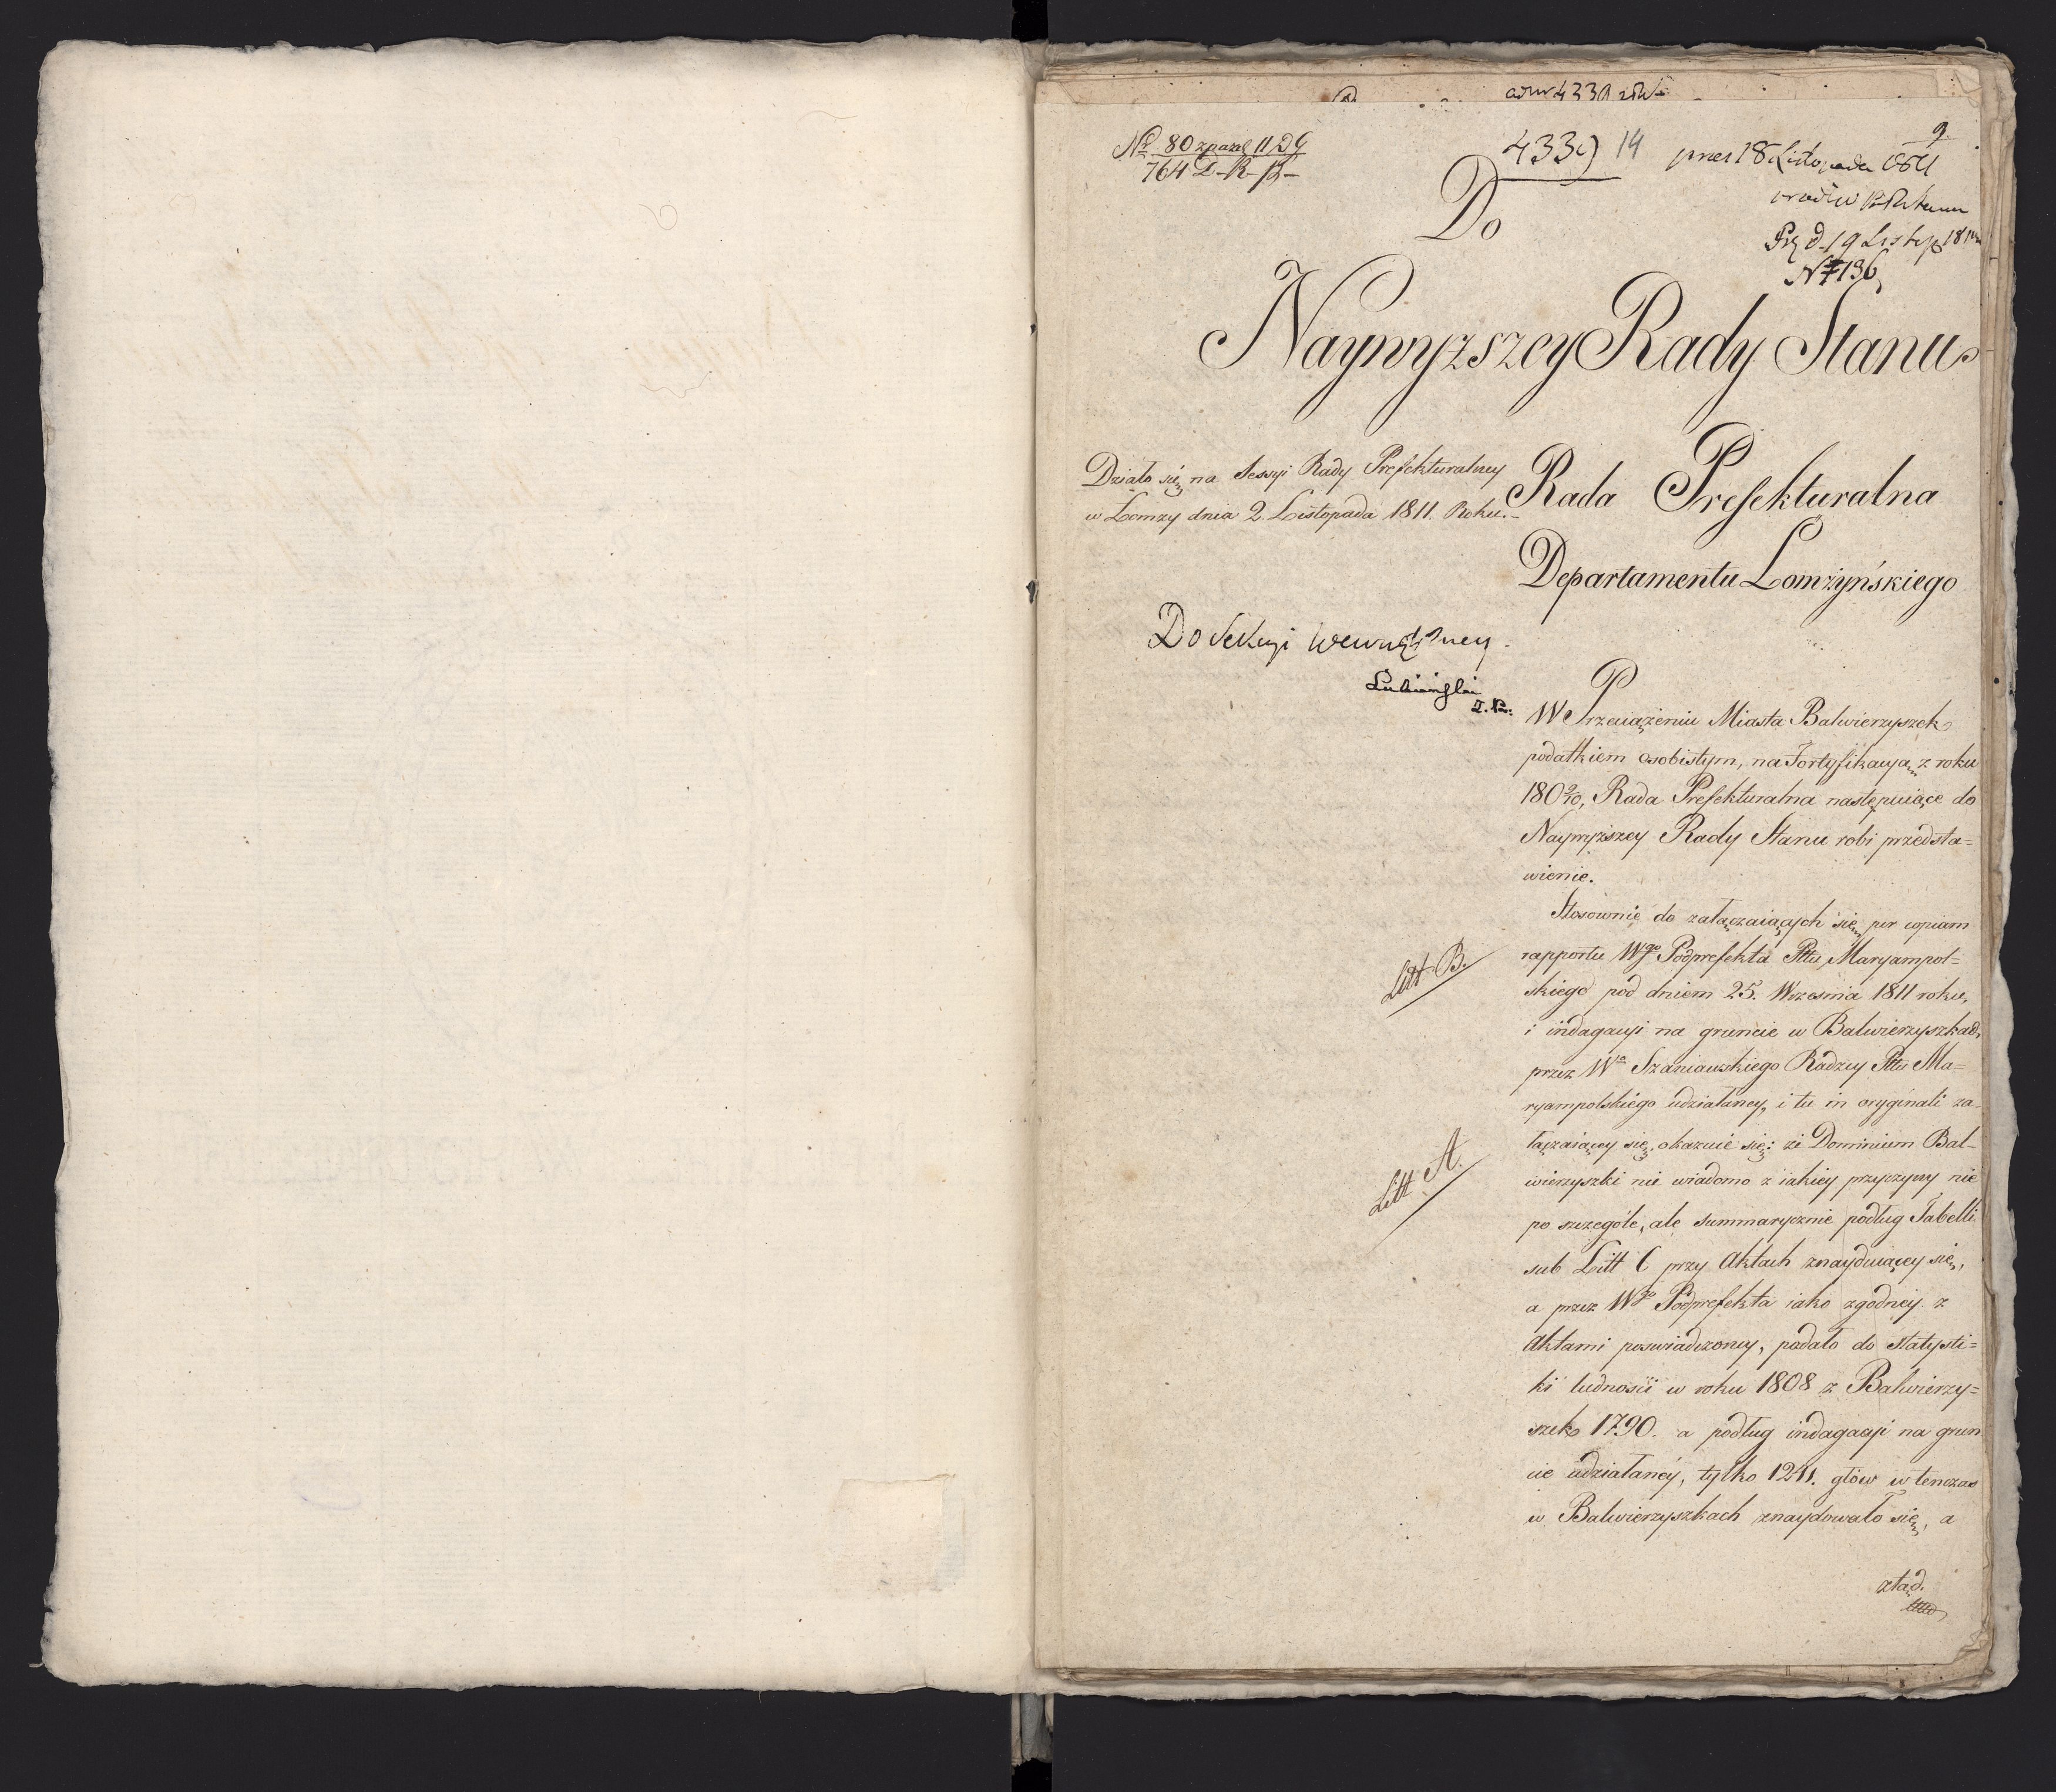 9.
4339 14
18 Listopada 1811
19 Listop 1811
№ 7196
Do
Naywyzszey Rady Stanu
Działo się na Sessyi Rady Prefekturalney
w Łomzy dnia 2. Listopada 1811. Roku.
Rada Prefekturalna
Departamentu Łomżyńskiego
Do Sekcyi Wewnętrzney.
Lubieński
W Przeciążeniu Miasta Balwierzyszek
podatkiem osobistym, na Fortyfikacyą z roku
1809/10, Rada Prefekturalna następuiące do
Naywyższey Rady Stanu robi przedsta=
wienie.
Stosownie do załączaiących się per copiam
Litt. B.
rapportu Wgo Podprefekta Pttu Maryampol=
skiego pod dniem 25. Wrzesnia 1811 roku,
i indagacyi na gruncie w Balwierzyszkach
przez Wo Szaniawskiego Radzcy Pttu Ma=
ryampolskiego udziałaney, i tu in oryginali za=
Litt A.
łączaiącey się, okazuie się: że Dominium Bal=
wierzyszki nie wiadomo z iakiey przyczyny nie
po szczególe, ale summarycznie podług Tabelli
sub Litt C przy Aktach znayduiącey się,
a przez Wgo Podprefekta iako zgodney z
Aktami poswiadczoney, podało do statysti=
ki ludności w roku 1808 z Balwierzy=
szek 1790. a podług indagacyi na grun
cie udziałaney, tylko 1211. głów w tenczas
w Balwierzyszkach znaydowało się, a
ztąd.